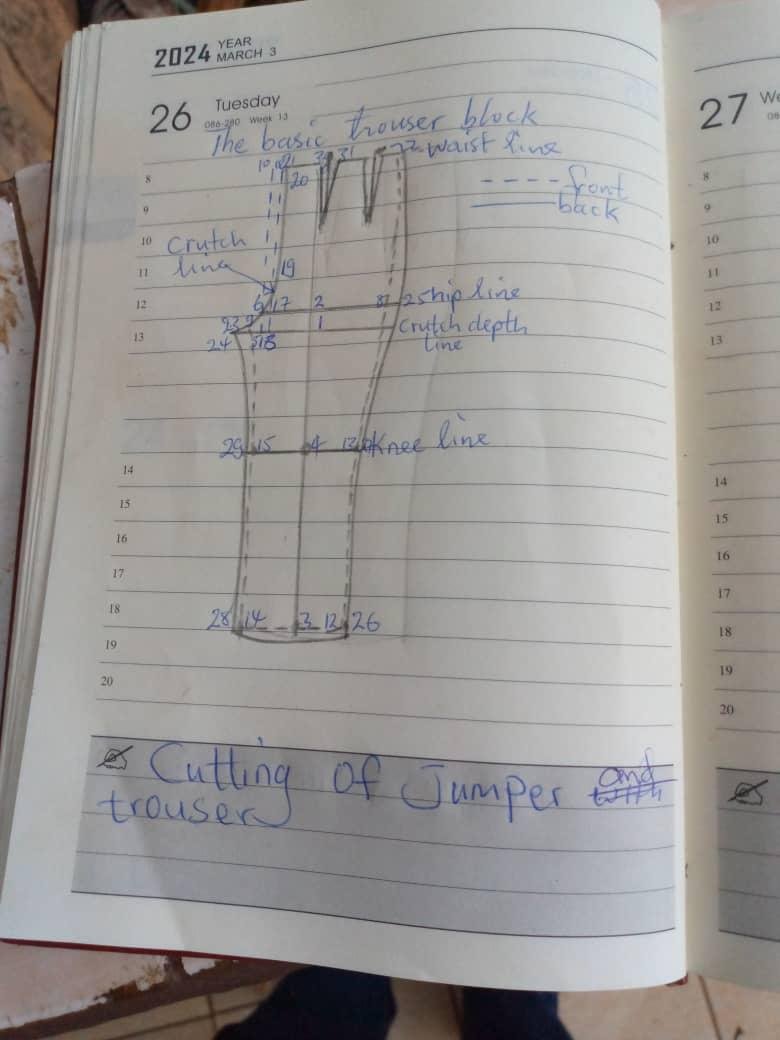 2024 YEAR
MARCH 3
26 Tuesday
086-280 Week 13
27 We
The basic trouser block
waist line
20
8
---- front
9
back
10
Crutch
11
line
19
12
6 17 2 8 25 hip line
13
1
Crutch depth
24
line
29 15 4 Knee line
14
15
16
17
18
28 14 3 12 26
19
20
8
9
10
11
12
13
14
15
16
17
18
19
20
Cutting of Jumper and
trouser